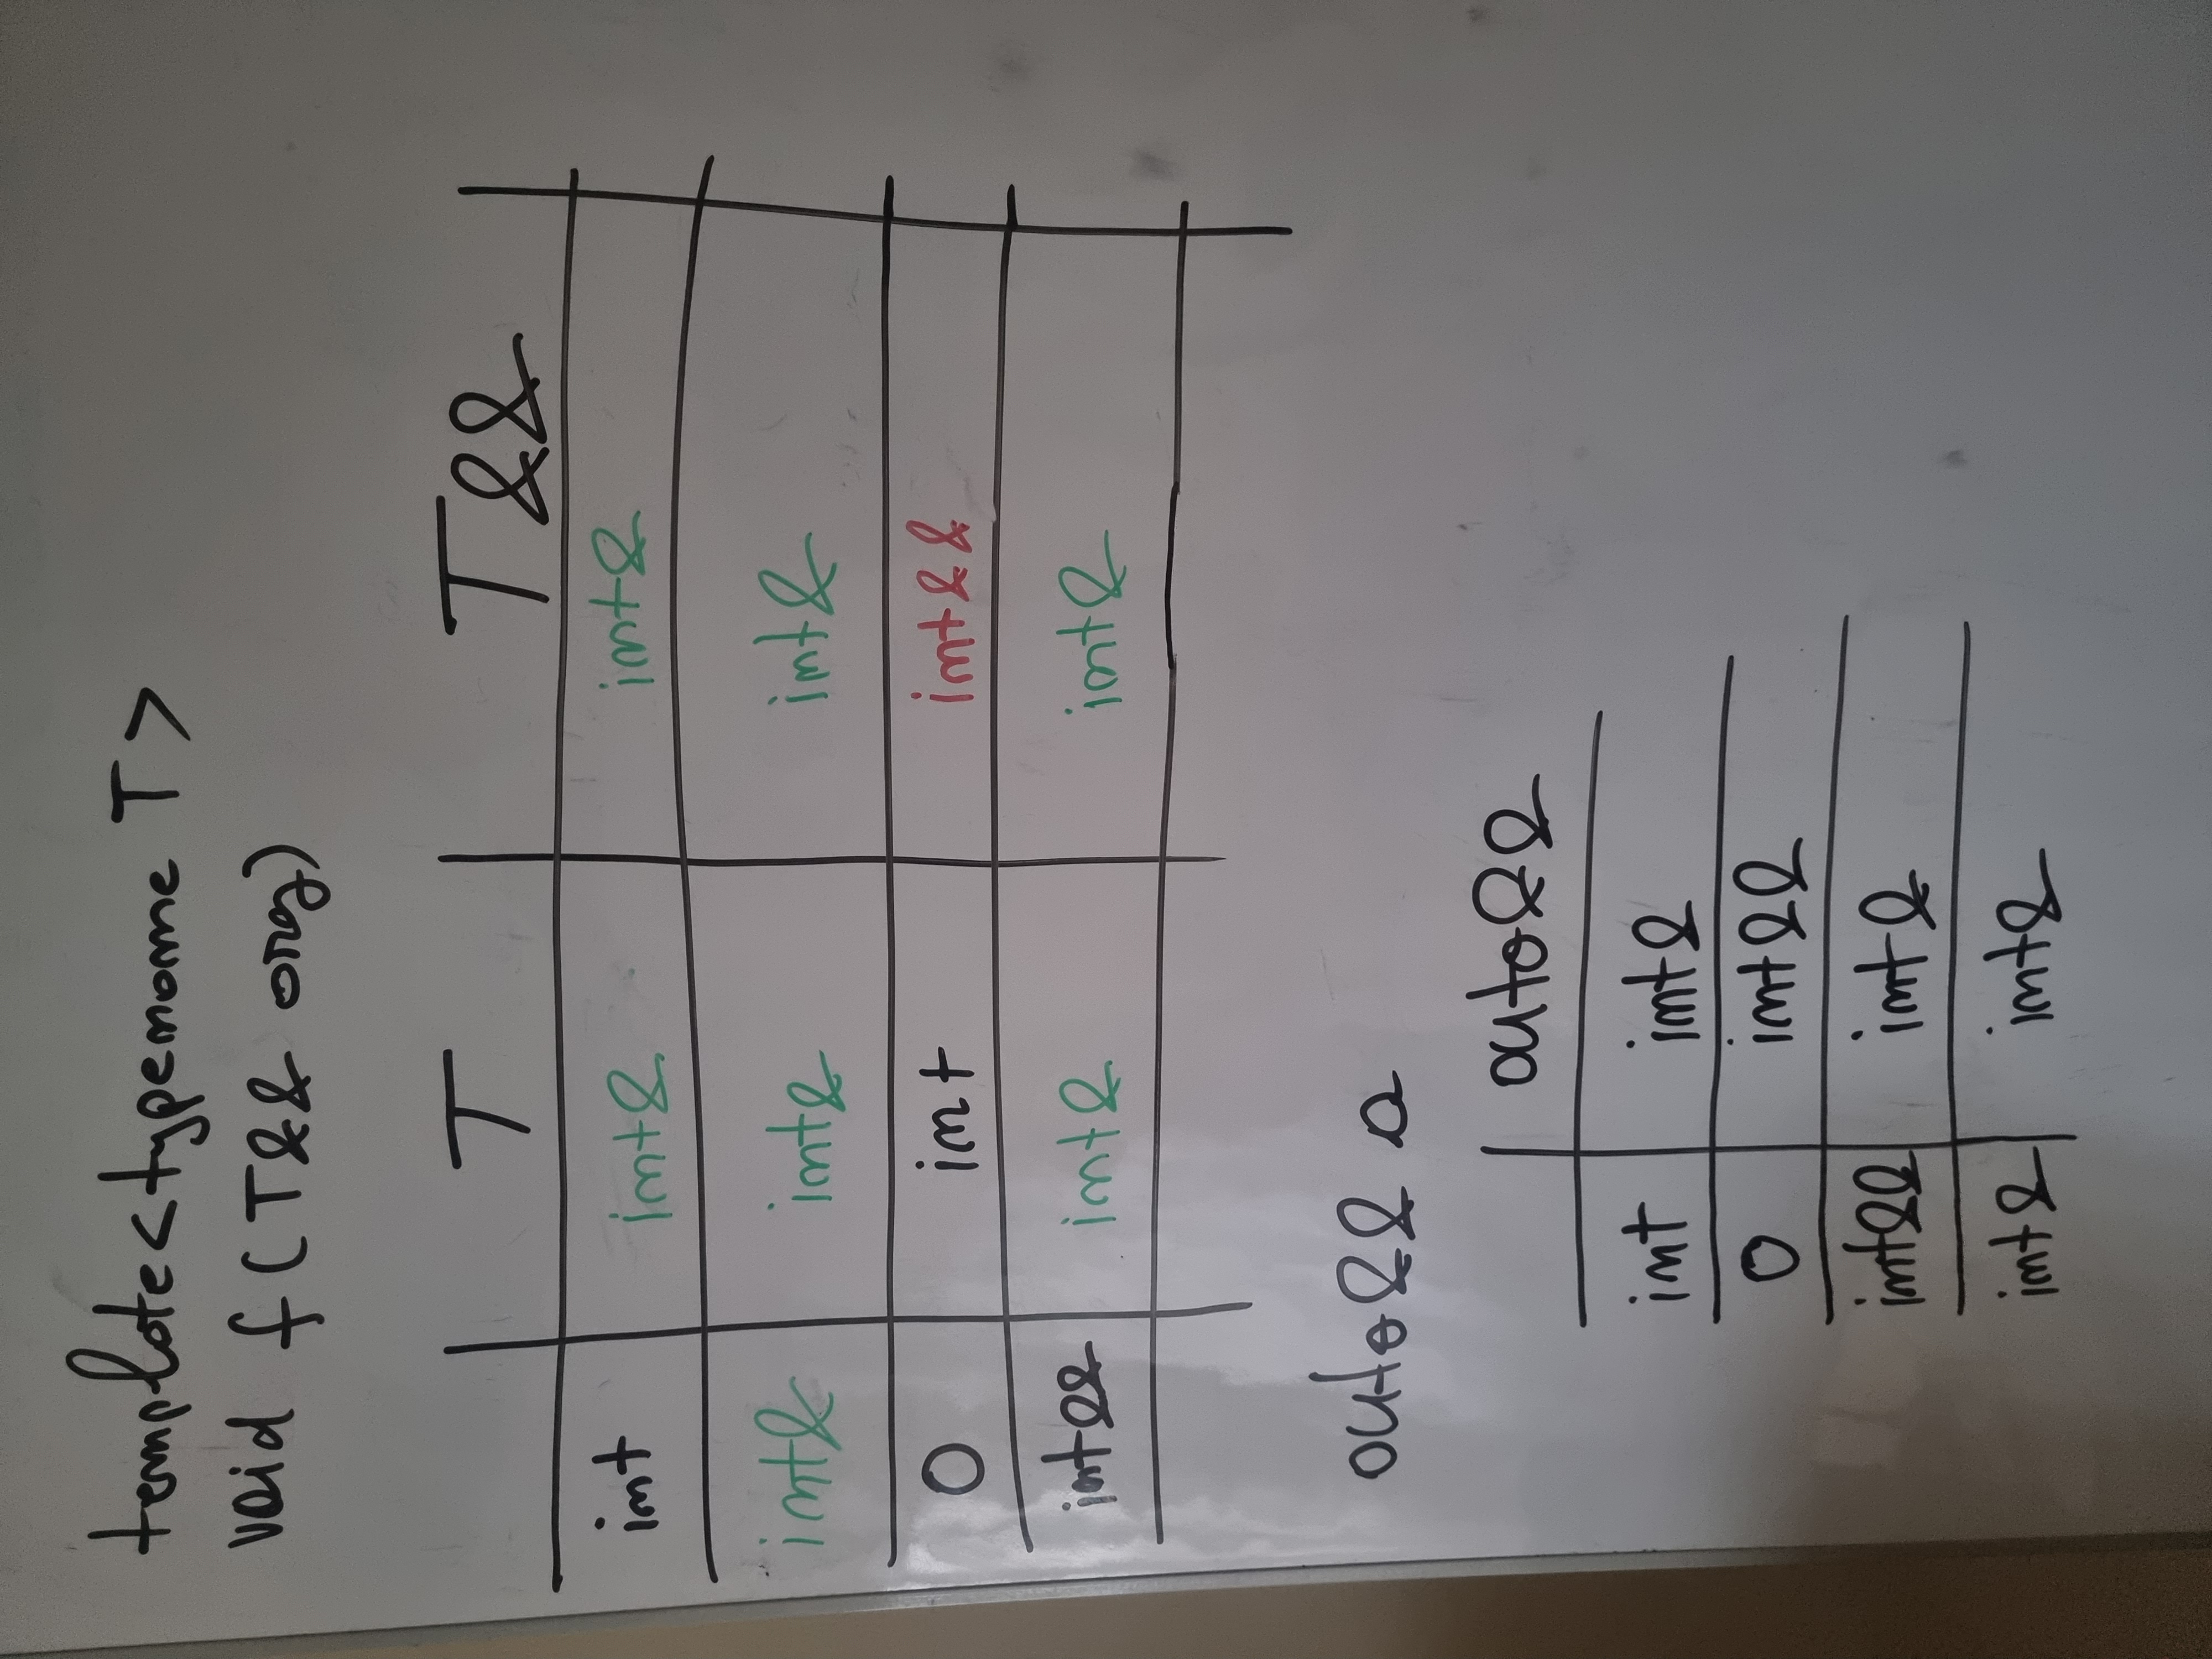 template<typename T>
void f(T&& arg)
T T&&
int int& int&
int& int& int&
0 int int&&
int&& int& int&
auto&& a
auto&&
int int&
0 int&&
int&& int&
int& int&